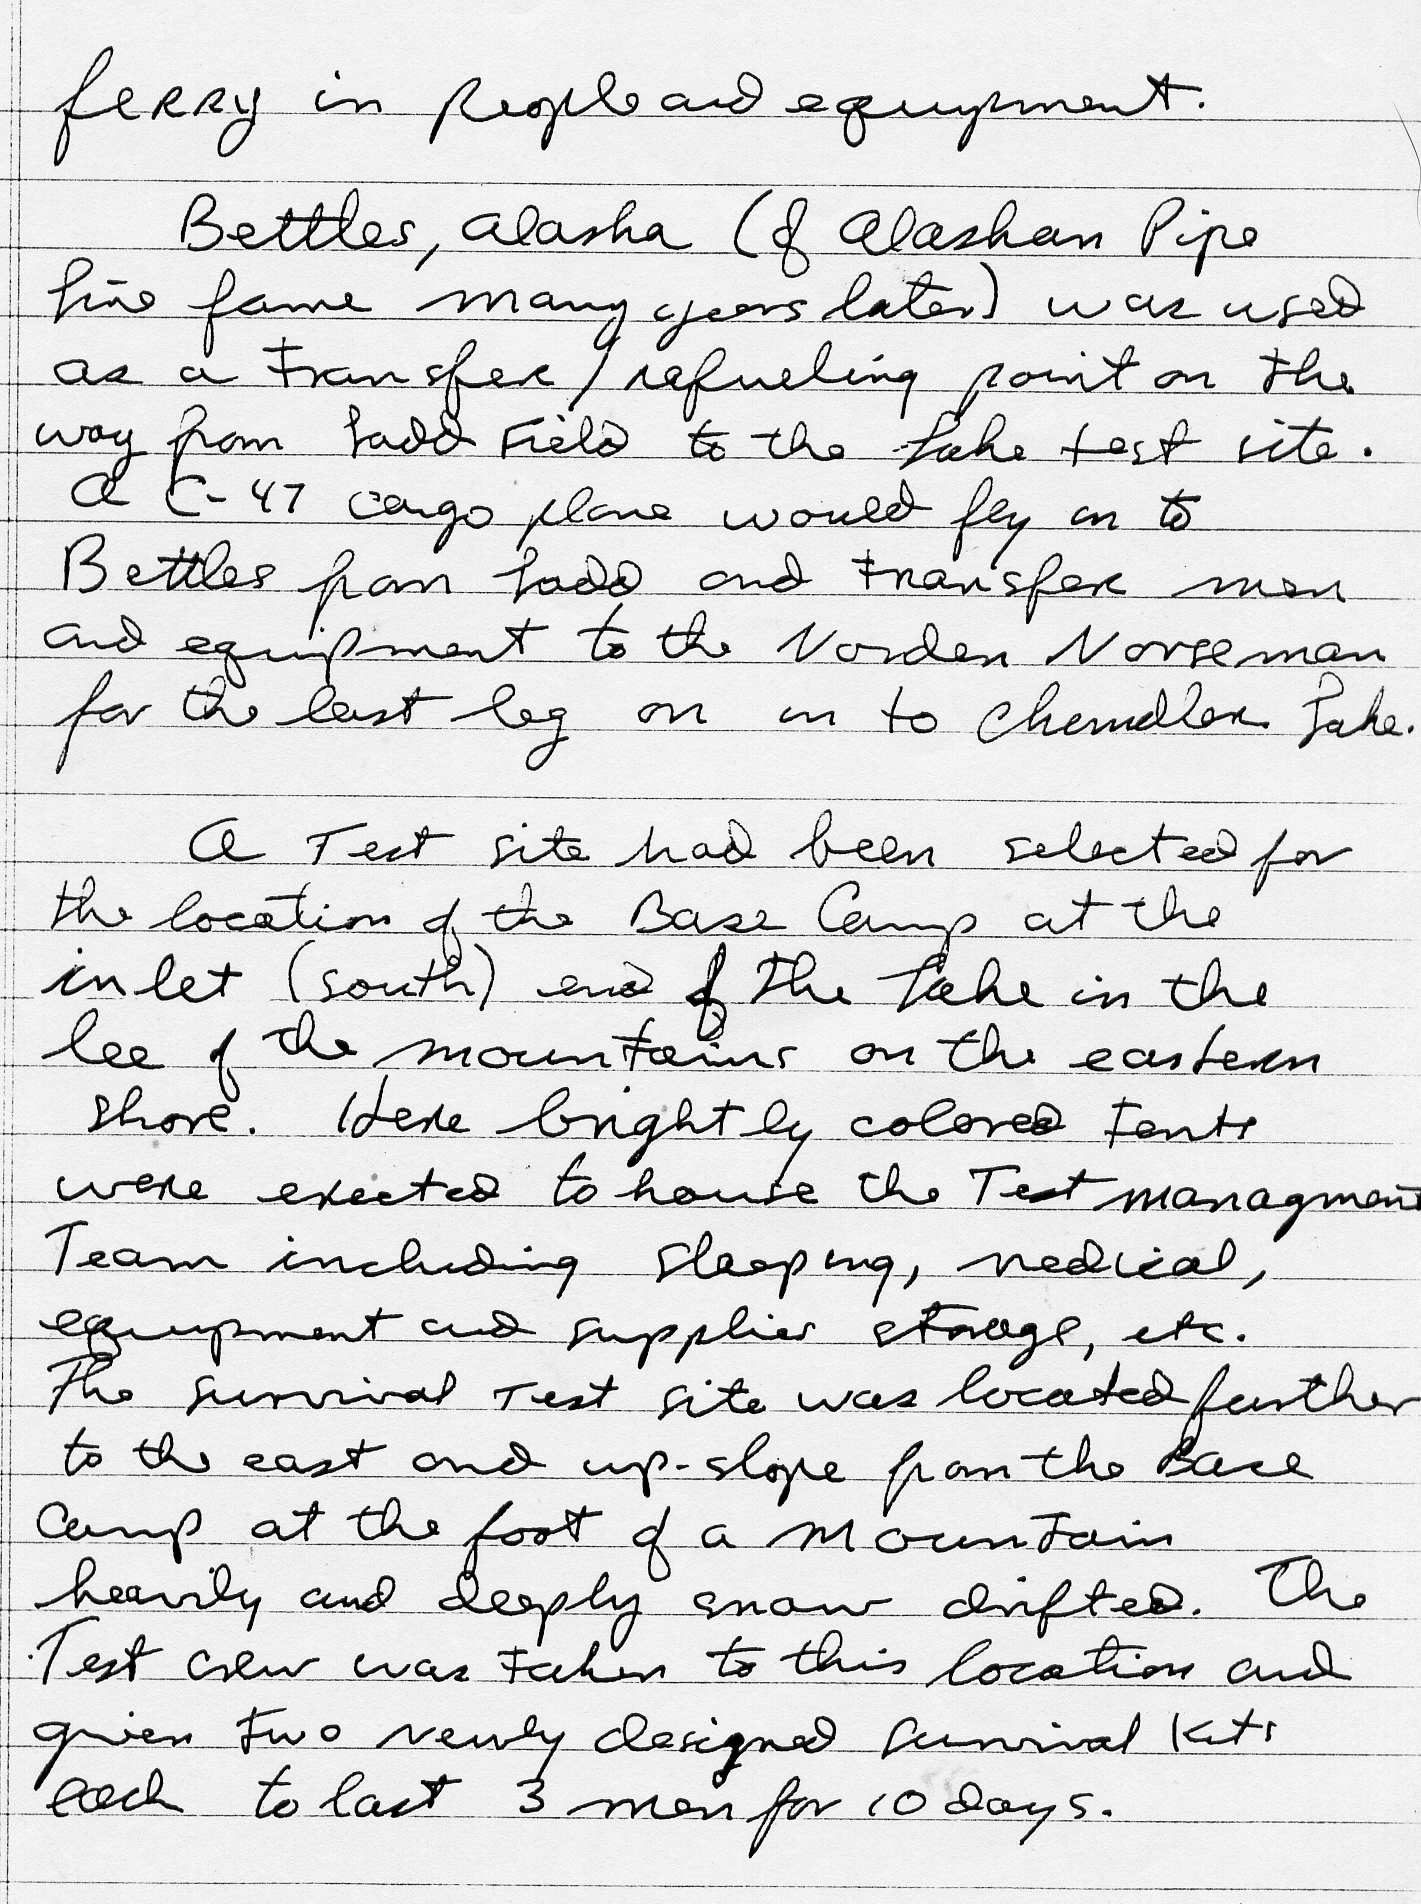 ferry in people and equipment.
Bettles, Alaska (of Alaskan Pipe
line fame many years later) was used
as a transfer/refueling point on the
way from Ladd Field to the Lake test site.
A C-47 cargo plane would fly on to
Bettles from Ladd and transfer men
and equipment to the Norden Norseman
for the last leg on in to Chandler Lake.
A Test site had been selected for
the location of the Base Camp at the
inlet (south) end of the Lake in the
lee of the mountains on the eastern
shore. Here brightly colored tents
were erected to house the Test managment
Team including sleeping, medical,
equipment and supplies storage, etc.
The survival Test site was located further
to the east and up-slope from the Base
Camp at the foot of a mountain
heavily and deeply snow drifted. The
Test crew was taken to this location and
given two newly designed survival kits
each to last 3 men for 10 days.